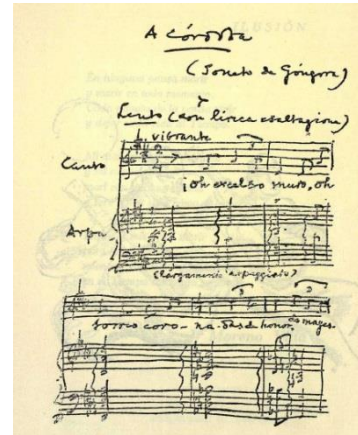 A Córdoba
(Soneto de Góngora)
Lento (con lirica esaltazione)
vibrante
Canto
¡Oh excelso muro, oh
Arpa
(largamente arpeggiato)
torres coro- na- das de honor, de majes-
3
3
3